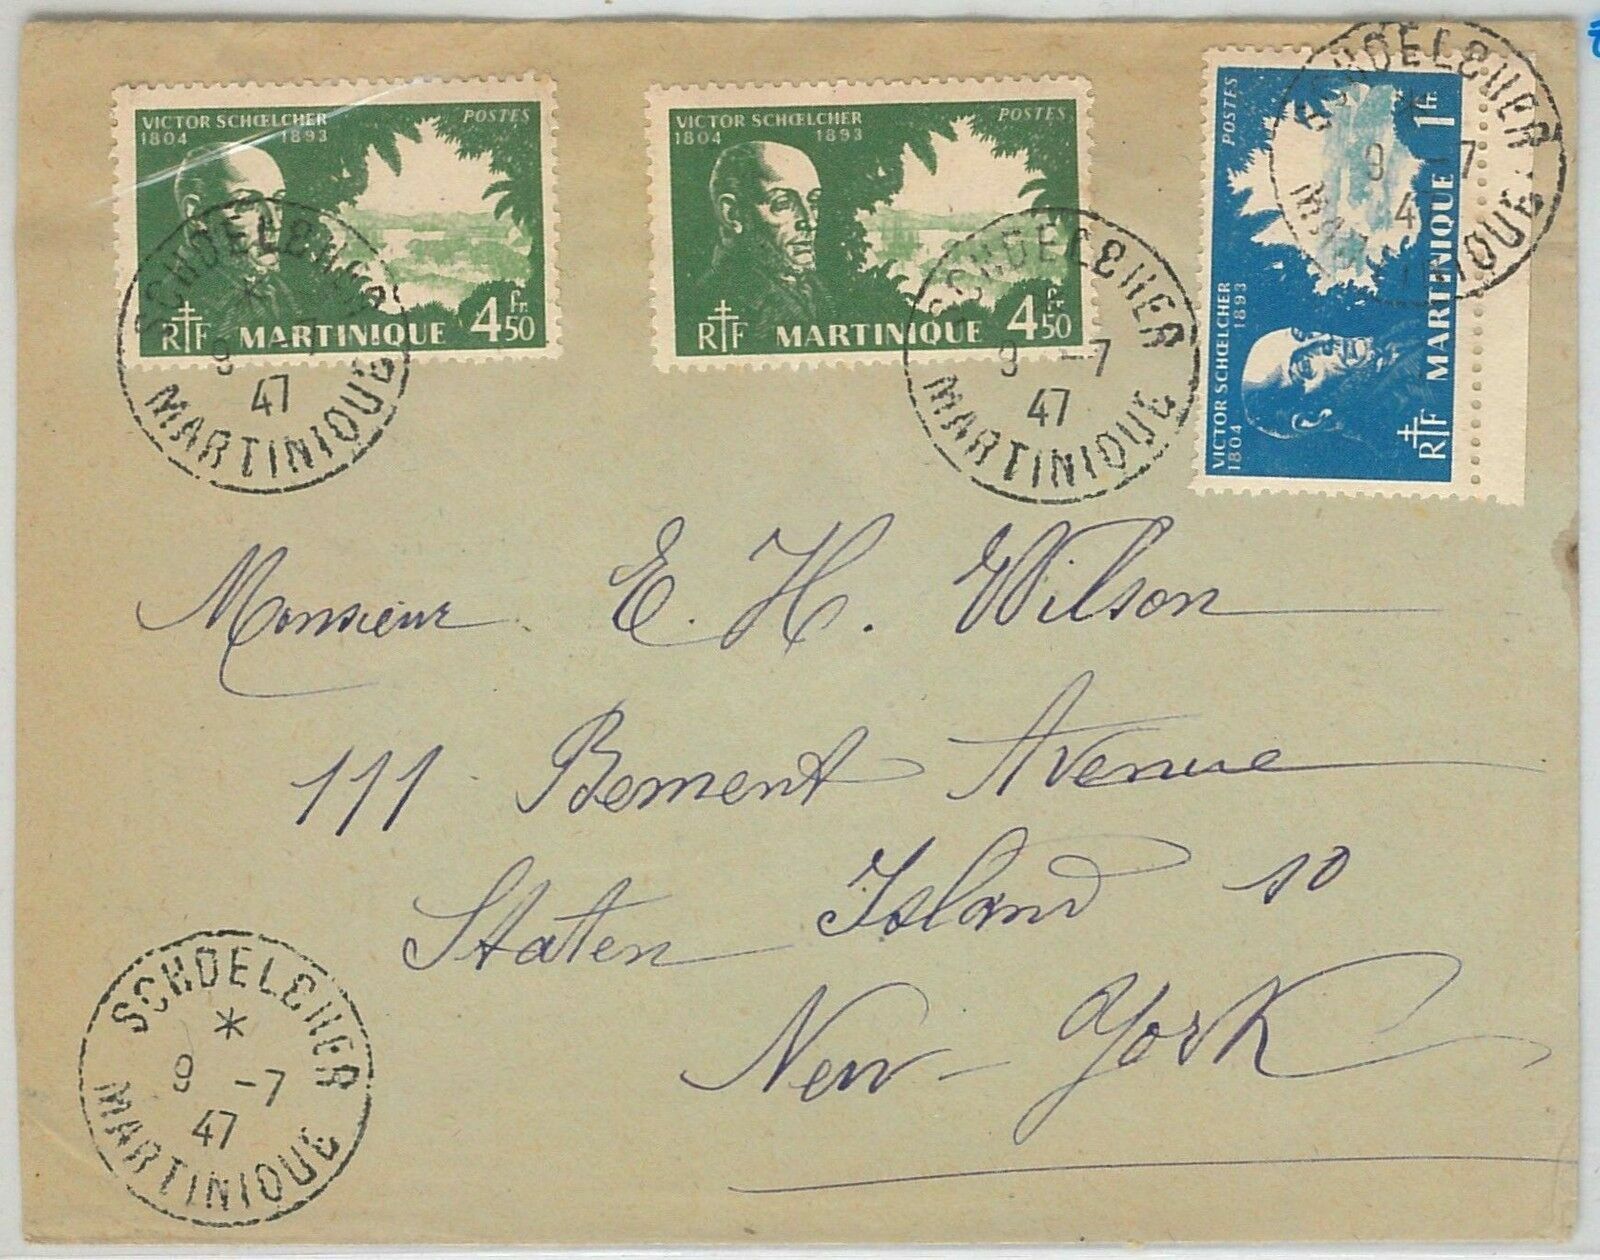 VICTOR SCHŒLCHER
1804 1893
POSTES
RF MARTINIQUE 4Fr.50
VICTOR SCHŒLCHER
1804 1893
POSTES
RF MARTINIQUE 4Fr.50
VICTOR SCHŒLCHER
1804 1893
POSTES
RF MARTINIQUE 1Fr.
SCHOELCHER
9 -7
47
MARTINIQUE
SCHOELCHER
9 -7
47
MARTINIQUE
SCHOELCHER
9 -7
4
MARTINIQUE
Monsieur E. H. Wilson
111 Bement Avenue
Staten Island 10
New-York
SCHOELCHER
9 -7
47
MARTINIQUE